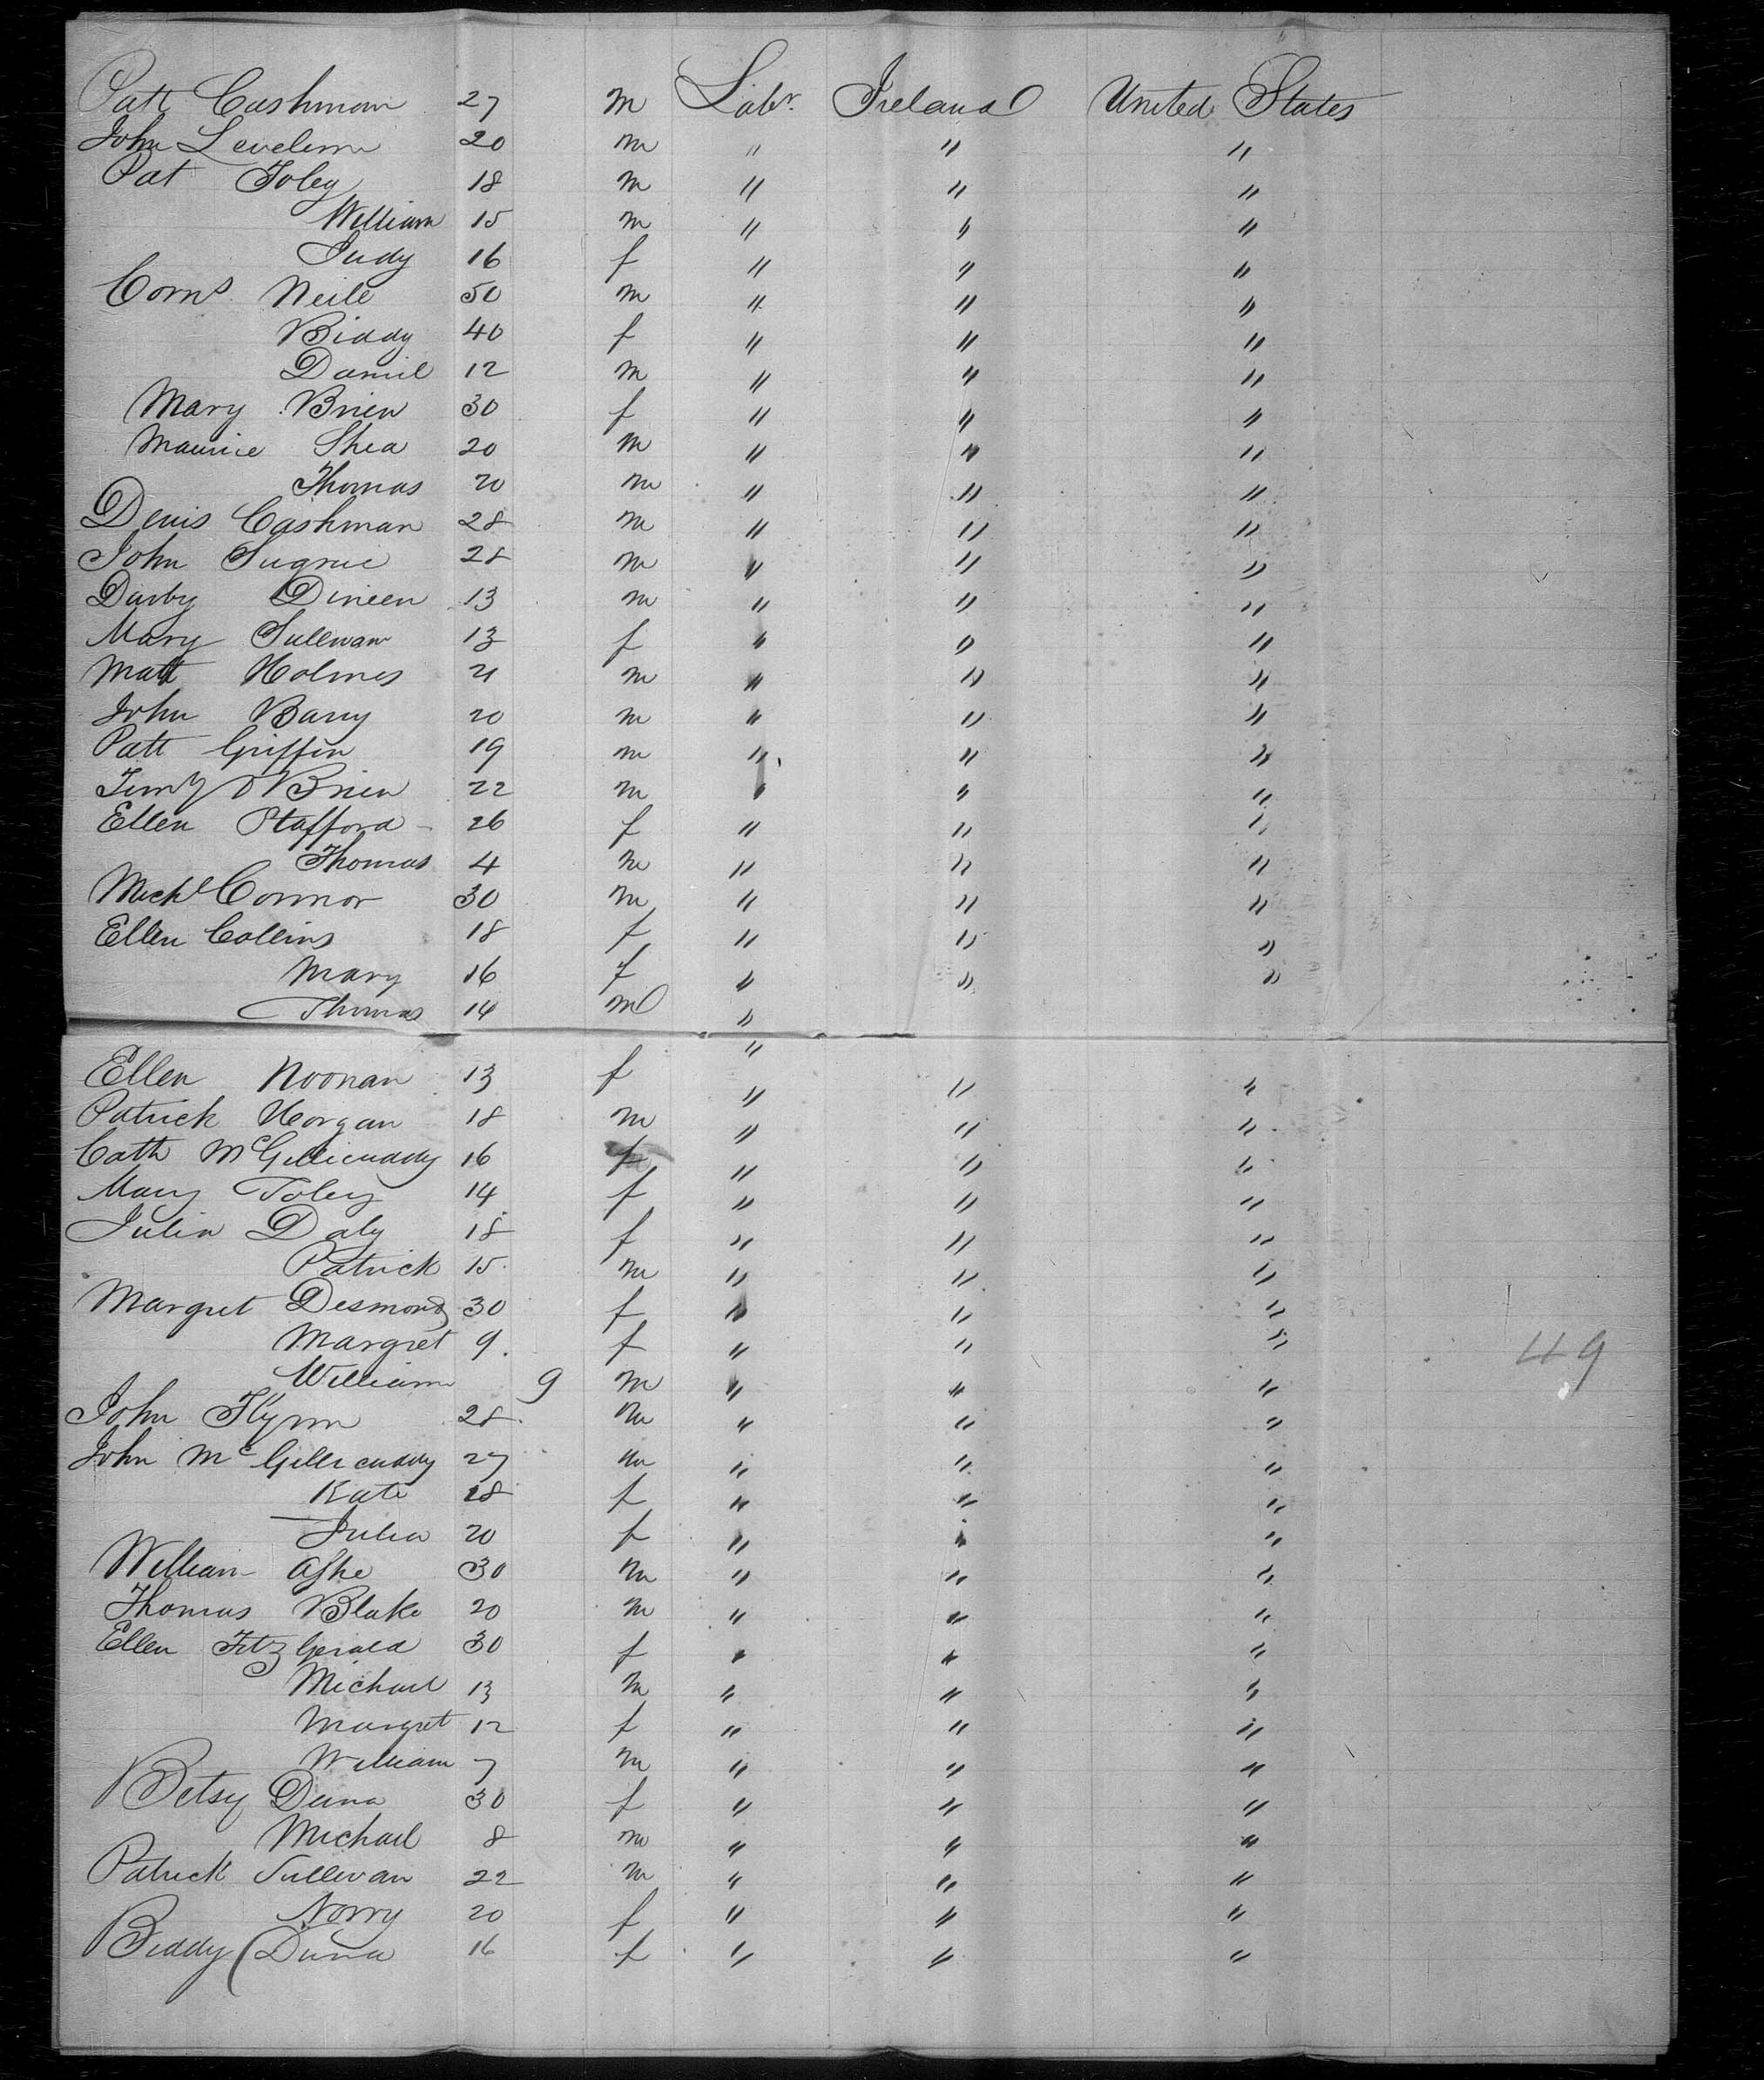 Patt Cashman 27 m Labr. Ireland United States
John 20 m " " "
Pat Foley 18 m " " "
William 15 m " " "
Judy 16 f " " "
Corns Neile 50 m " " "
Biddy 40 f " " "
Daniel 12 m " " "
Mary Brien 30 f " " "
Maurice Shea 20 m " " "
Thomas 20 m " " "
Denis Cashman 28 m " " "
John Sugrue 28 m " " "
Darby Dineen 13 m " " "
Mary Sullivan 13 f " " "
Matt Holmes 21 m " " "
John Barry 20 m " " "
Patt Griffin 19 m " " "
Timy O'Brien 22 m " " "
Ellen Stafford 26 f " " "
Thomas 4 m " " "
Michl Connor 30 m " " "
Ellen Collins 18 f " " "
Mary 16 f " " "
Thomas 14 m "
"
Ellen Noonan 13 f " " "
Patrick Horgan 18 m " " "
Cath McGillicuddy 16 f " " "
Mary Foley 14 f " " "
Julia Daly 18 f " " "
Patrick 15 m " " "
Margret Desmond 30 f " " "
Margret 9 f " " "
49
William 9 m " " "
John Flynn 28 m " " "
John McGillicuddy 27 m " " "
Kate 18 f " " "
Julia 20 f " " "
William Ashe 30 m " " "
Thomas Blake 20 m " " "
Ellen FitzGerald 30 f " " "
Michael 13 m " " "
Margret 12 f " " "
William 7 m " " "
Betsy Dunn 30 f " " "
Michael 8 m " " "
Patrick Sullivan 22 m " " "
Norry 20 f " " "
Biddy Dunn 16 f " " "